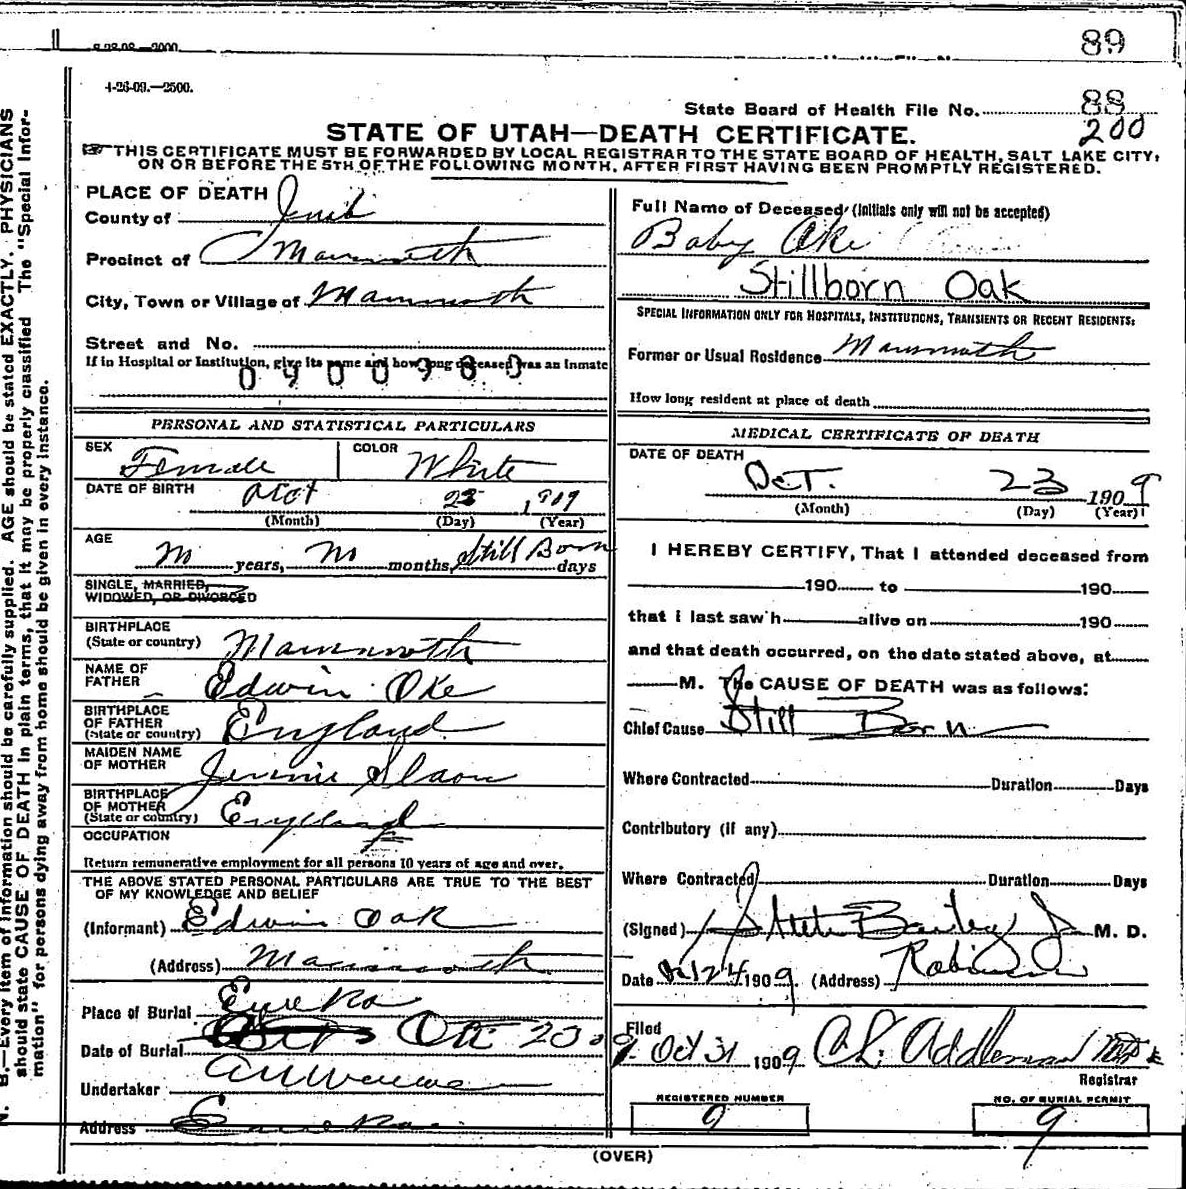 8-28-08—2000
89
4-26-09.—2500.
88
State Board of Health File No.
200
STATE OF UTAH—DEATH CERTIFICATE.
THIS CERTIFICATE MUST BE FORWARDED BY LOCAL REGISTRAR TO THE STATE BOARD OF HEALTH, SALT LAKE CITY,
ON OR BEFORE THE 5TH OF THE FOLLOWING MONTH, AFTER FIRST HAVING BEEN PROMPTLY REGISTERED.
PLACE OF DEATH
County of Juab
Precinct of Mammoth
City, Town or Village of Mammoth
Street and No.
If in Hospital or Institution, give its name and how long deceased was an inmate
0900980
PERSONAL AND STATISTICAL PARTICULARS
SEX Female COLOR White
DATE OF BIRTH Oct 23 1909
(Month) (Day) (Year)
AGE No years, No months, Still Born days
SINGLE, MARRIED,
WIDOWED, OR DIVORCED
BIRTHPLACE
(State or country) Mammoth
NAME OF
FATHER Edwin Oke
BIRTHPLACE
OF FATHER
(State or country) England
MAIDEN NAME
OF MOTHER Jennie
BIRTHPLACE
OF MOTHER
(State or country) England
OCCUPATION
Return remunerative employment for all persons 10 years of age and over.
THE ABOVE STATED PERSONAL PARTICULARS ARE TRUE TO THE BEST
OF MY KNOWLEDGE AND BELIEF
(Informant) Edwin Oak
(Address) Mammoth
Place of Burial Eureka
Date of Burial Oct 23 09
Undertaker
Address Eureka
Full Name of Deceased (Initials only will not be accepted)
Baby Oke
Stillborn Oak
SPECIAL INFORMATION ONLY FOR HOSPITALS, INSTITUTIONS, TRANSIENTS OR RECENT RESIDENTS:
Former or Usual Residence Mammoth
How long resident at place of death
MEDICAL CERTIFICATE OF DEATH
DATE OF DEATH
Oct. 23 1909
(Month) (Day) (Year)
I HEREBY CERTIFY, That I attended deceased from
190 to 190
that i last saw h alive on 190
and that death occurred, on the date stated above, at
M. The CAUSE OF DEATH was as follows:
Chief Cause Still Born
Where Contracted Duration Days
Contributory (if any)
Where Contracted Duration Days
(Signed) Steele Bailey Jr M. D.
Date 10/24 1909 (Address) Robinson
Filed
Oct 31 1909 Addleman
Registrar
REGISTERED NUMBER
9
NO. OF BURIAL PERMIT
9
(OVER)
N. B.—Every item of information should be carefully supplied. AGE should be stated EXACTLY. PHYSICIANS
should state CAUSE OF DEATH in plain terms, that it may be properly classified The "Special Infor-
mation" for persons dying away from home should be given in every instance.